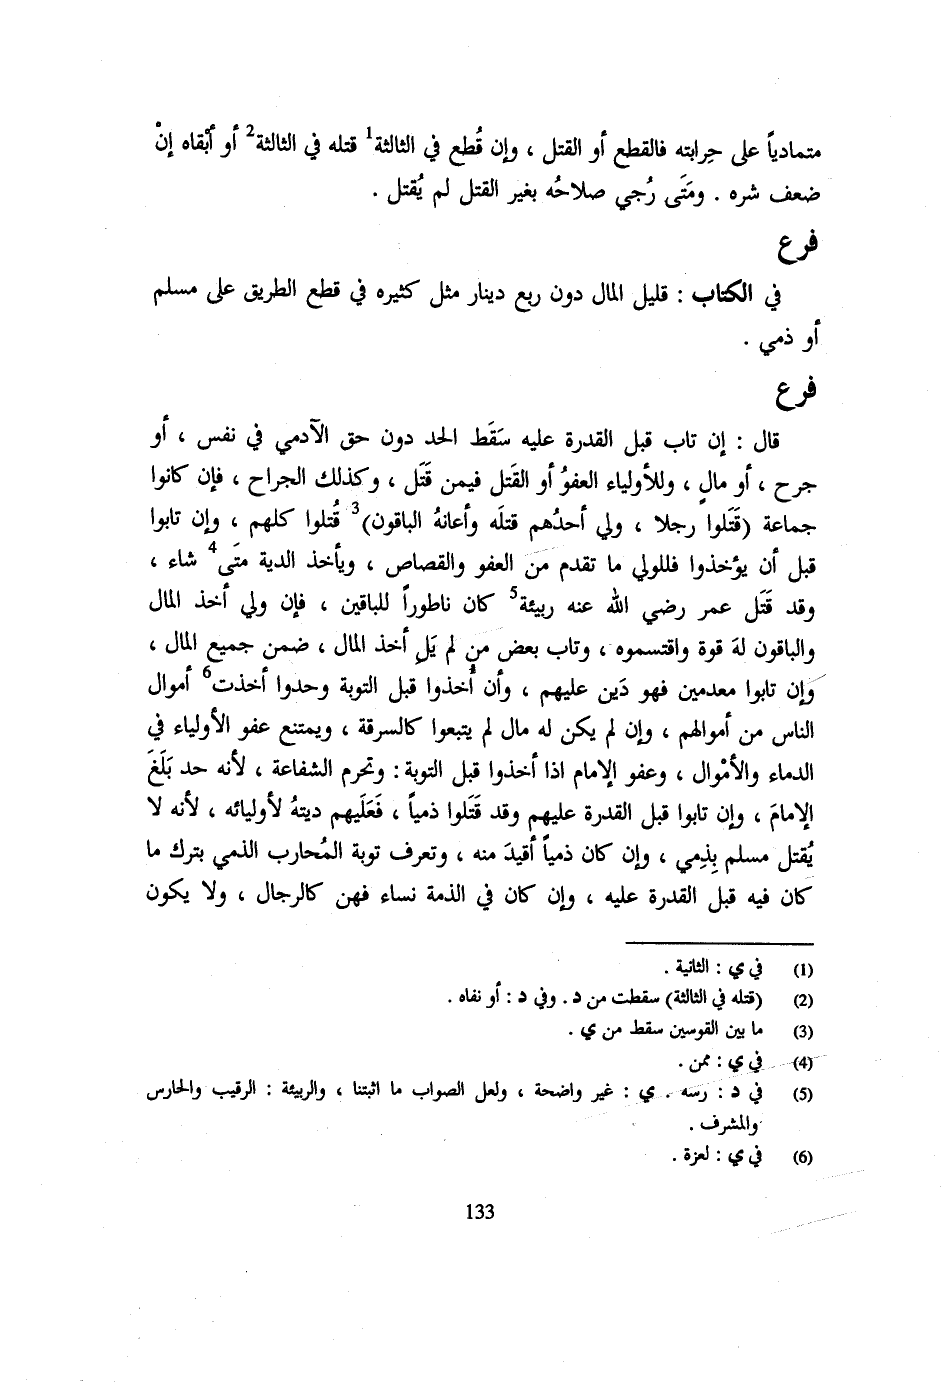 متمادياً على حِرابته فالقطع أو القتل ، وإن قُطع في الثالثة1 قتله في الثالثة2 أو أبْقاه إنْ
ضعف شره . ومَتَى رُجي صلاحُه بغير القتل لم يُقتل .
فرع
في الكتاب : قليل المال دون ربع دينار مثل كثيره في قطع الطريق على مسلم
أو ذمي .
فرع
قال : إن تاب قبل القدرة عليه سَقَط الحد دون حق الآدمي في نفس ، أو
جرح ، أو مالٍ ، وللأولياء العفوُ أو القَتل فيمن قَتَل ، وكذلك الجراح ، فإن كانوا
جماعة (قَتَلوا رجلا ، ولي أحدُهم قتلَه وأعانهُ الباقون)3 قُتلوا كلهم ، وإن تابوا
قبل أن يؤخذوا فللولي ما تقدم من العفو والقصاص ، ويأخذ الدية متَى4 شاء ،
وقد قَتَل عمر رضي الله عنه ربيئة5 كان ناطوراً للباقين ، فإن ولي أخذ المال
والباقون لهَ قوة واقتسموه ، وتاب بعض من لم يَلِ أخذ المال ، ضمن جميع المال ،
وإن تابوا معدمين فهو دَين عليهم ، وأن أُخذوا قبل التوبة وحدوا أخذت6 أموال
الناس من أموالهم ، وإن لم يكن له مال لم يتبعوا كالسرقة ، ويمتنع عفو الأولياء في
الدماء والأمْوال ، وعفو الإمام اذا أخذوا قبل التوبة : وتحرم الشفاعة ، لأنه حد بَلَغَ
الإمامَ ، وإن تابوا قبل القدرة عليهم وقد قَتَلوا ذمياً ، فَعَلَيهم ديتهُ لأوليائه ، لأنه لا
يُقتل مسلم بِذِمي ، وإن كان ذمياً أقيدَ منه ، وتعرف توبة المُحارب الذمي بترك ما
كان فيه قبل القدرة عليه ، وإن كان في الذمة نساء فهن كالرجال ، ولا يكون
(1) في ي : الثانية .
(2) (قتله في الثالثة) سقطت من د . وفي د : أو نفاه .
(3) ما بين القوسين سقط من ي .
(4) في ي : ممن .
(5) في د : رسه . ي : غير واضحة ، ولعل الصواب ما اثبتنا ، والربيئة : الرقيب والحارس
والمشرف .
(6) في ي : لعزة .
133